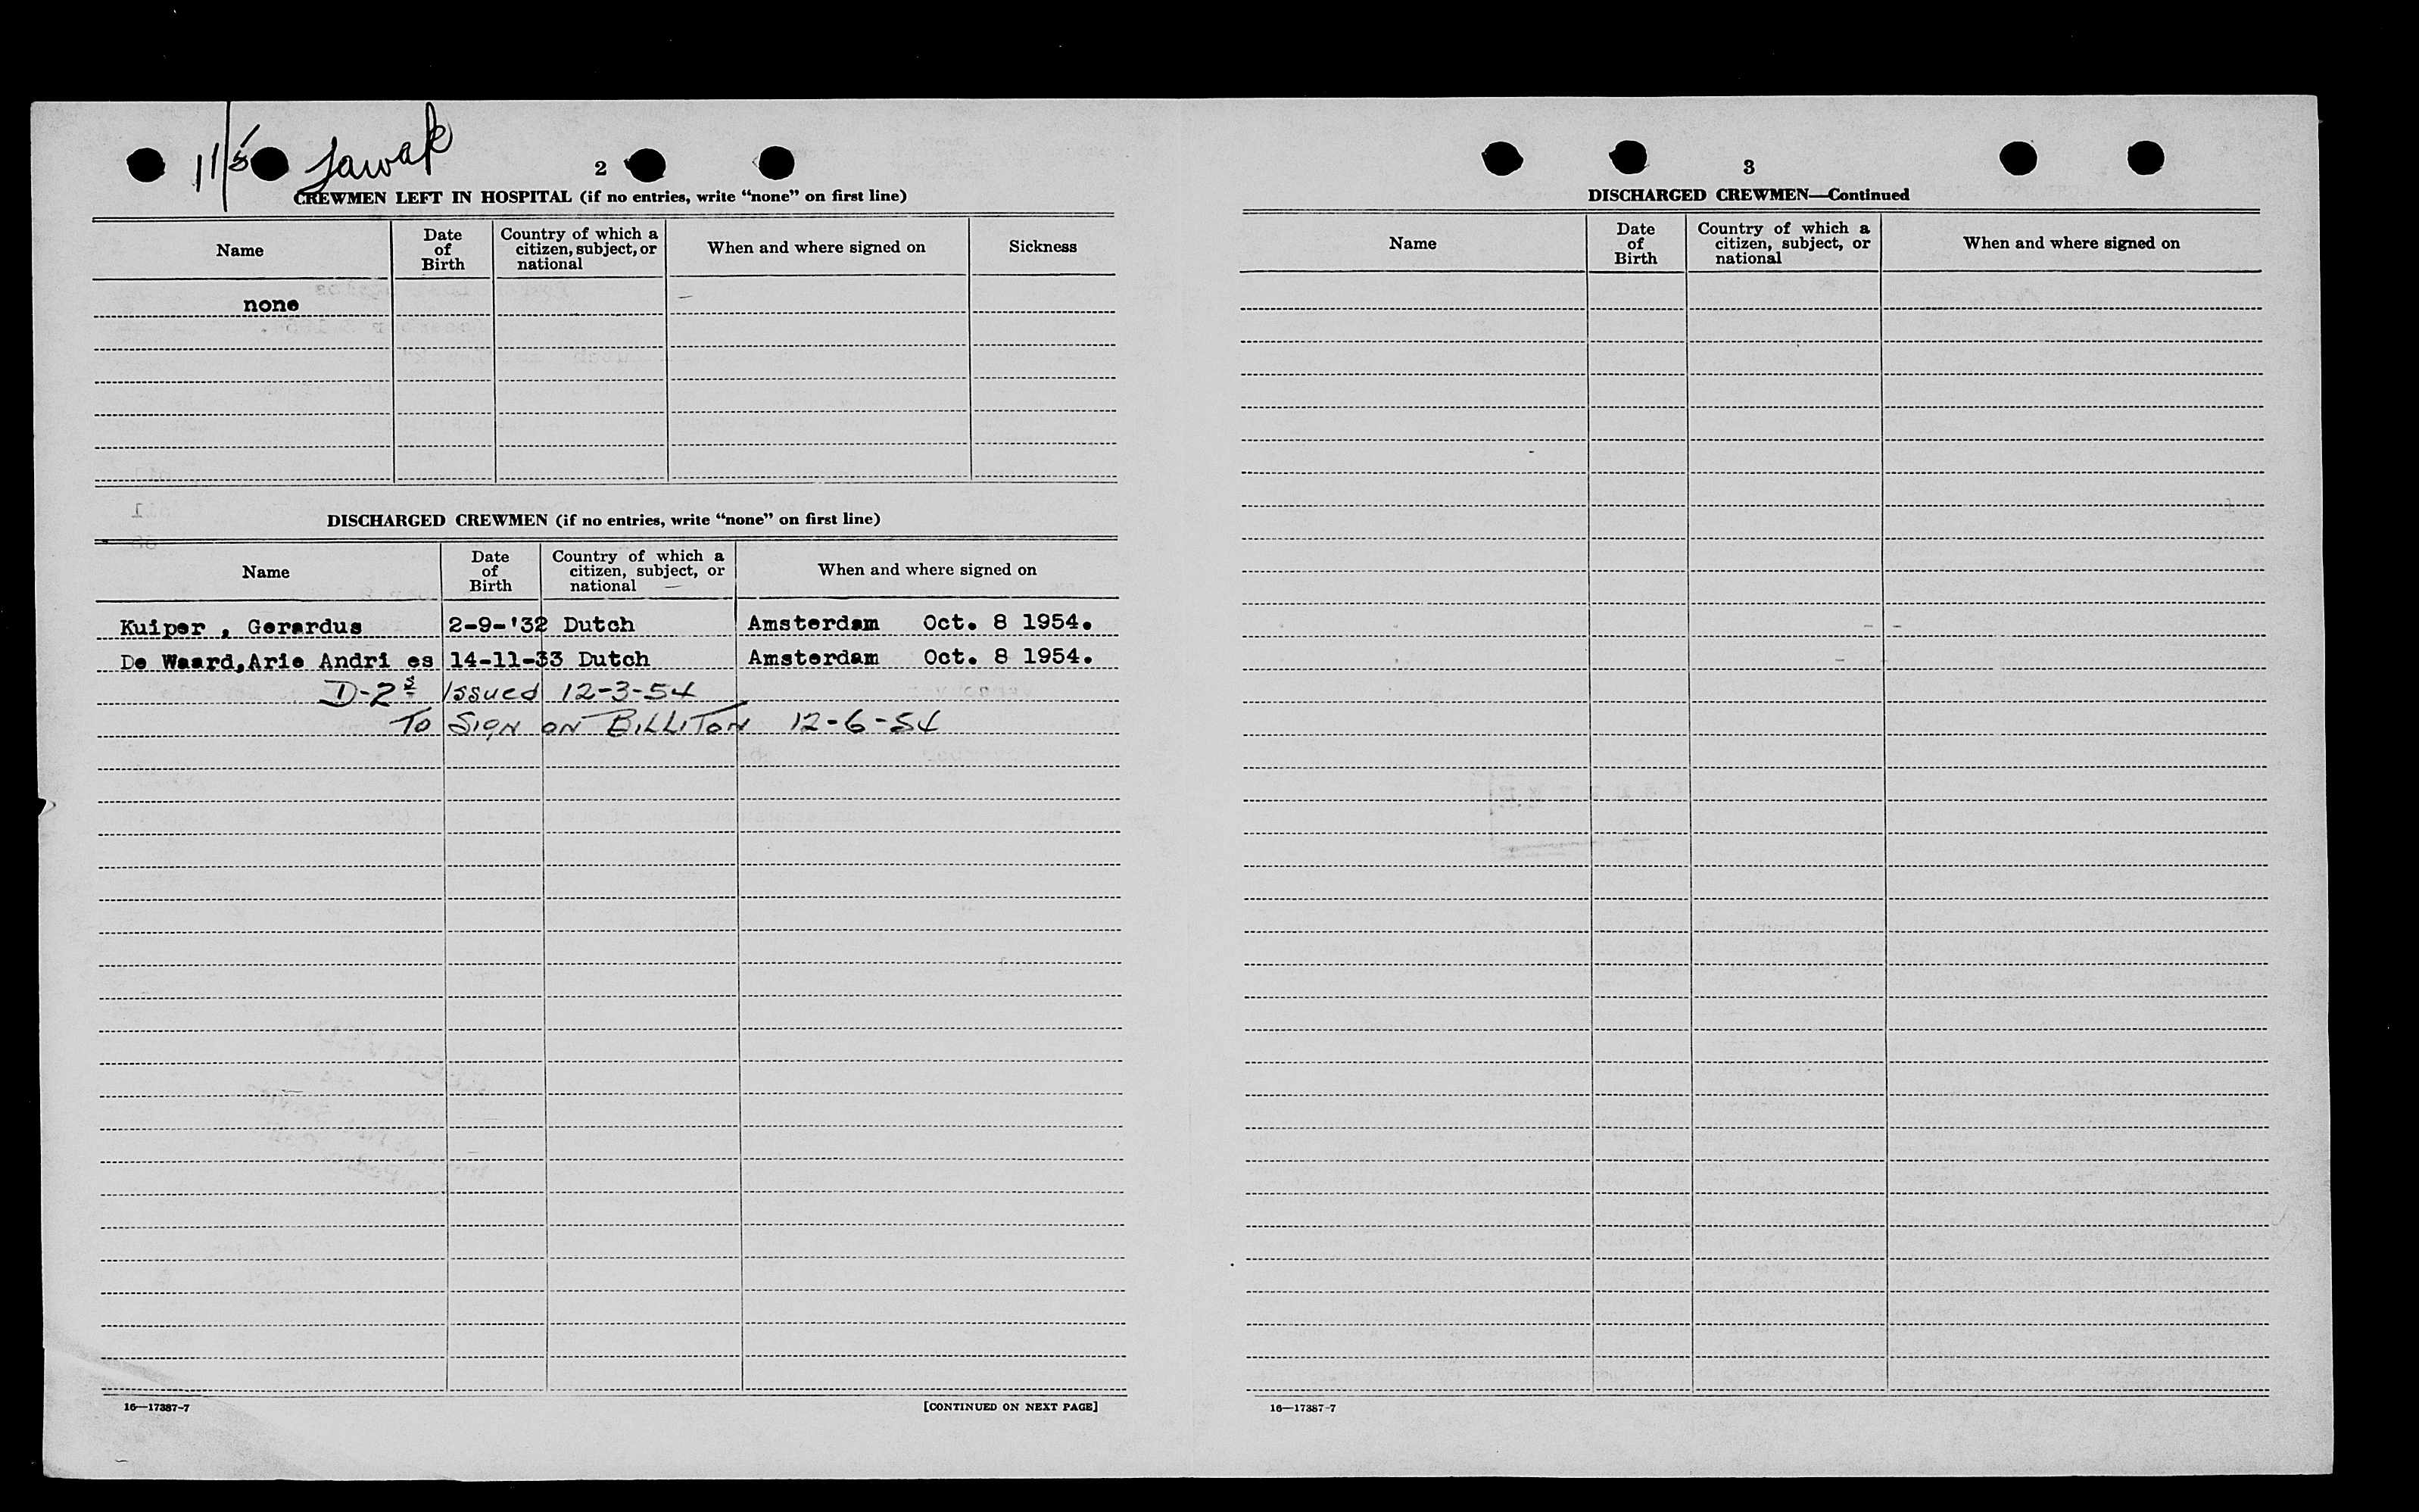 11/5 Sawak
2
CREWMEN LEFT IN HOSPITAL (if no entries, write “none” on first line)
Name
Date of Birth
Country of which a citizen, subject, or national
When and where signed on
Sickness
none
DISCHARGED CREWMEN (if no entries, write “none” on first line)
Name
Date of Birth
Country of which a citizen, subject, or national
When and where signed on
Kuiper , Gerardus 2-9-'32 Dutch Amsterdam Oct. 8 1954.
De Waard,Arie Andri es 14-11-33 Dutch Amsterdam Oct. 8 1954.
D-2s Issued 12-3-54
To SIGN ON BILLITON 12-6-54
16—17387-7
[CONTINUED ON NEXT PAGE]
3
DISCHARGED CREWMEN—Continued
Name
Date of Birth
Country of which a citizen, subject, or national
When and where signed on
16—17387-7